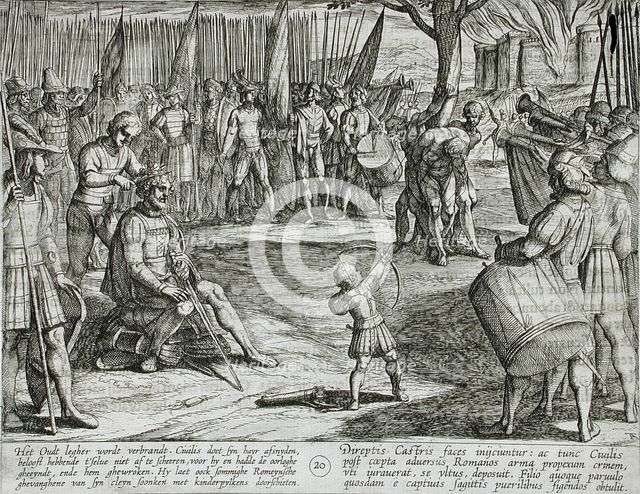 Het Oudt legher wordt verbrandt. Ciuilis doet syn hayr afsnyden,
belooft hebbende t'selue niet af te scheeren, voor hy en hadde de oorloghe
gheeyndt, ende hem ghewroken. Hy laet oock sommighe Romeynsche
ghevanghene van syn cleyn soonken met kinderpylkens doorschieten.
20
Direptis Castris faces inijciuntur: ac tunc Ciuilis
post cœpta adversus Romanos arma propexum crinem,
uti iurauerat, se vltus, deposuit. Filio quoque paruulo
quosdam e captiuis sagittis puerilibus figendos obtulit.